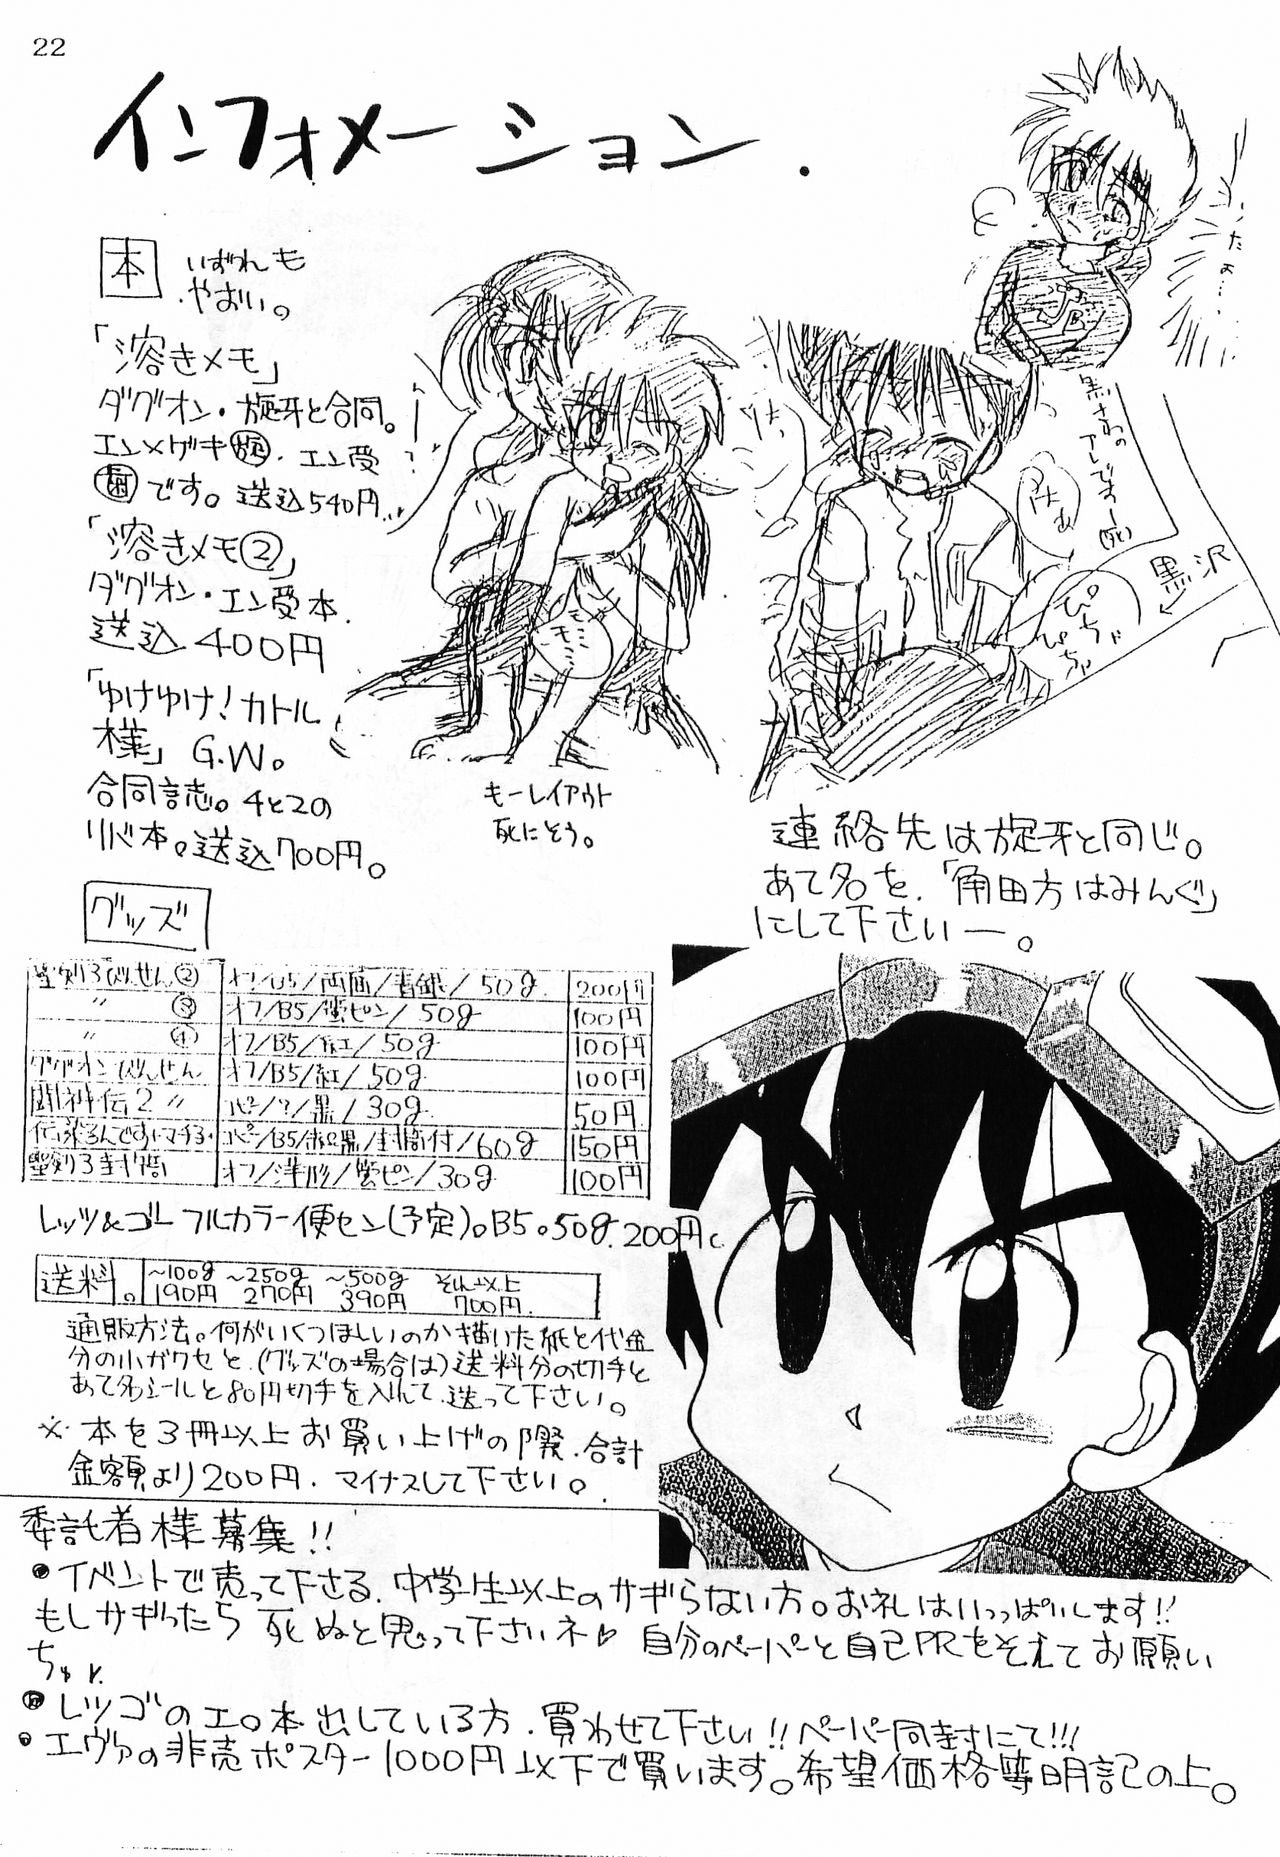 22
インフォメーション.
本 いずれも
やおい。
「溶きメモ」
ダグオン・旋牙と合同。
エン×ゲキ旋. エン受
です。送込540円
「溶きメモ②」
ダグオン・エン受本.
送込400円
「ゆけゆけ!カトル
様」G.W。
合同誌。4と2の
リバ本。送込700円。
モミモミ
もーレイアウト
死にそう。
はぁ
ぴちゃ
ぴちゃ
黒沢
連絡先は旋牙と同じ。
あて名を、「角田方はみんぐ」
にして下さいー。
グッズ
聖剣3びんせん② オフ/B5/両面/青銀/50g. 200円
〃 ③ オフ/B5/蛍ピン/50g 100円
〃 ④ オフ/B5/紅/50g 100円
ダグオンびんせん オフ/B5/紅/50g 100円
闘神伝2 〃 コピー/?/黒/30g. 50円.
コピー/B5/赤黒/封筒付/60g 150円
聖剣3封筒 オフ/洋形/蛍ピン/30g 100円
レッツ&ゴー フルカラー便セン(予定)。B5。50g.200円。
送料。 ~100g ~250g ~500g それ以上
190円 270円 390円 700円.
通販方法。何がいくつほしいのか描いた紙と代金
分の小ガワセと、(グッズの場合は)送料分の切手と
あて名シールと80円切手を入れて、送って下さい。
※本を3冊以上お買い上げの際、合計
金額より200円、マイナスして下さい。
委託者様募集!!
●イベントで売って下さる、中学生以上のサギらない方。お礼はいっぱいします!!
もしサギったら死ぬと思って下さいネ♡ 自分のペーパーと自己PRをそえてお願い
ちゅ。
レツゴのエロ本出している方、買わせて下さい!!ペーパー同封にて!!!
エヴァの非売ポスター1000円以下で買います。希望価格等明記の上。